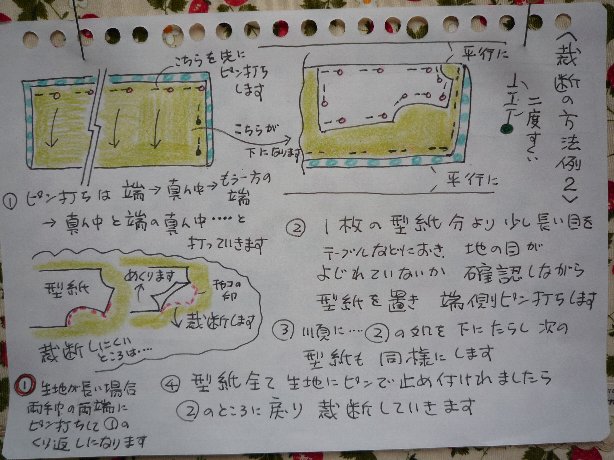 〈裁断の方法例2〉
こちらを先に
ピン打ち
します
こちらが
下になります
平行に
二度すくい
平行に
① ピン打ちは 端→真ん中→もう一方の
端
→真ん中と端の真ん中‥‥と
打っていきます
型紙
めくります
チャコの
印
裁断します
裁断しにくい
ところは‥‥
① 生地が長い場合
両巾の両端に
ピン打ちして①の
くり返しになります
② 1枚の型紙分より少し長い目を
テーブルなどにおき 地の目が
よじれていないか 確認しながら
型紙を置き 端側りピン打ちします
③ 順に…②の処を下にたらし次の
型紙も 同様にします
④ 型紙全て生地にピンで止め付けれましたら
②のところに戻り 裁断していきます